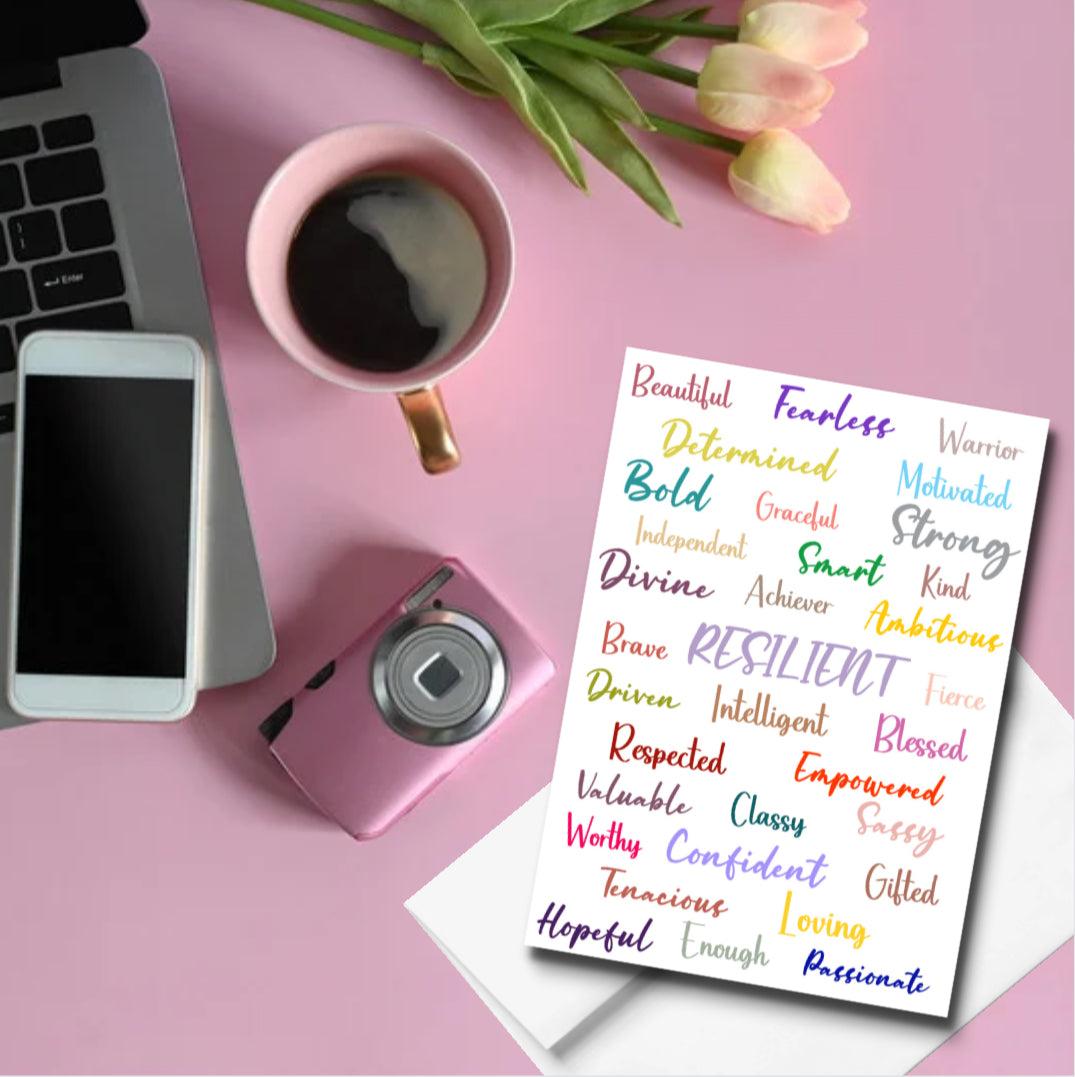 Enter
Beautiful Fearless Warrior
Determined Motivated
Bold Graceful Strong
Independent Smart Kind
Divine Achiever Ambitious
Brave RESILIENT Fierce
Driven Intelligent Blessed
Respected Empowered
Valuable Classy Sassy
Worthy Confident Gifted
Tenacious Loving
Hopeful Enough Passionate